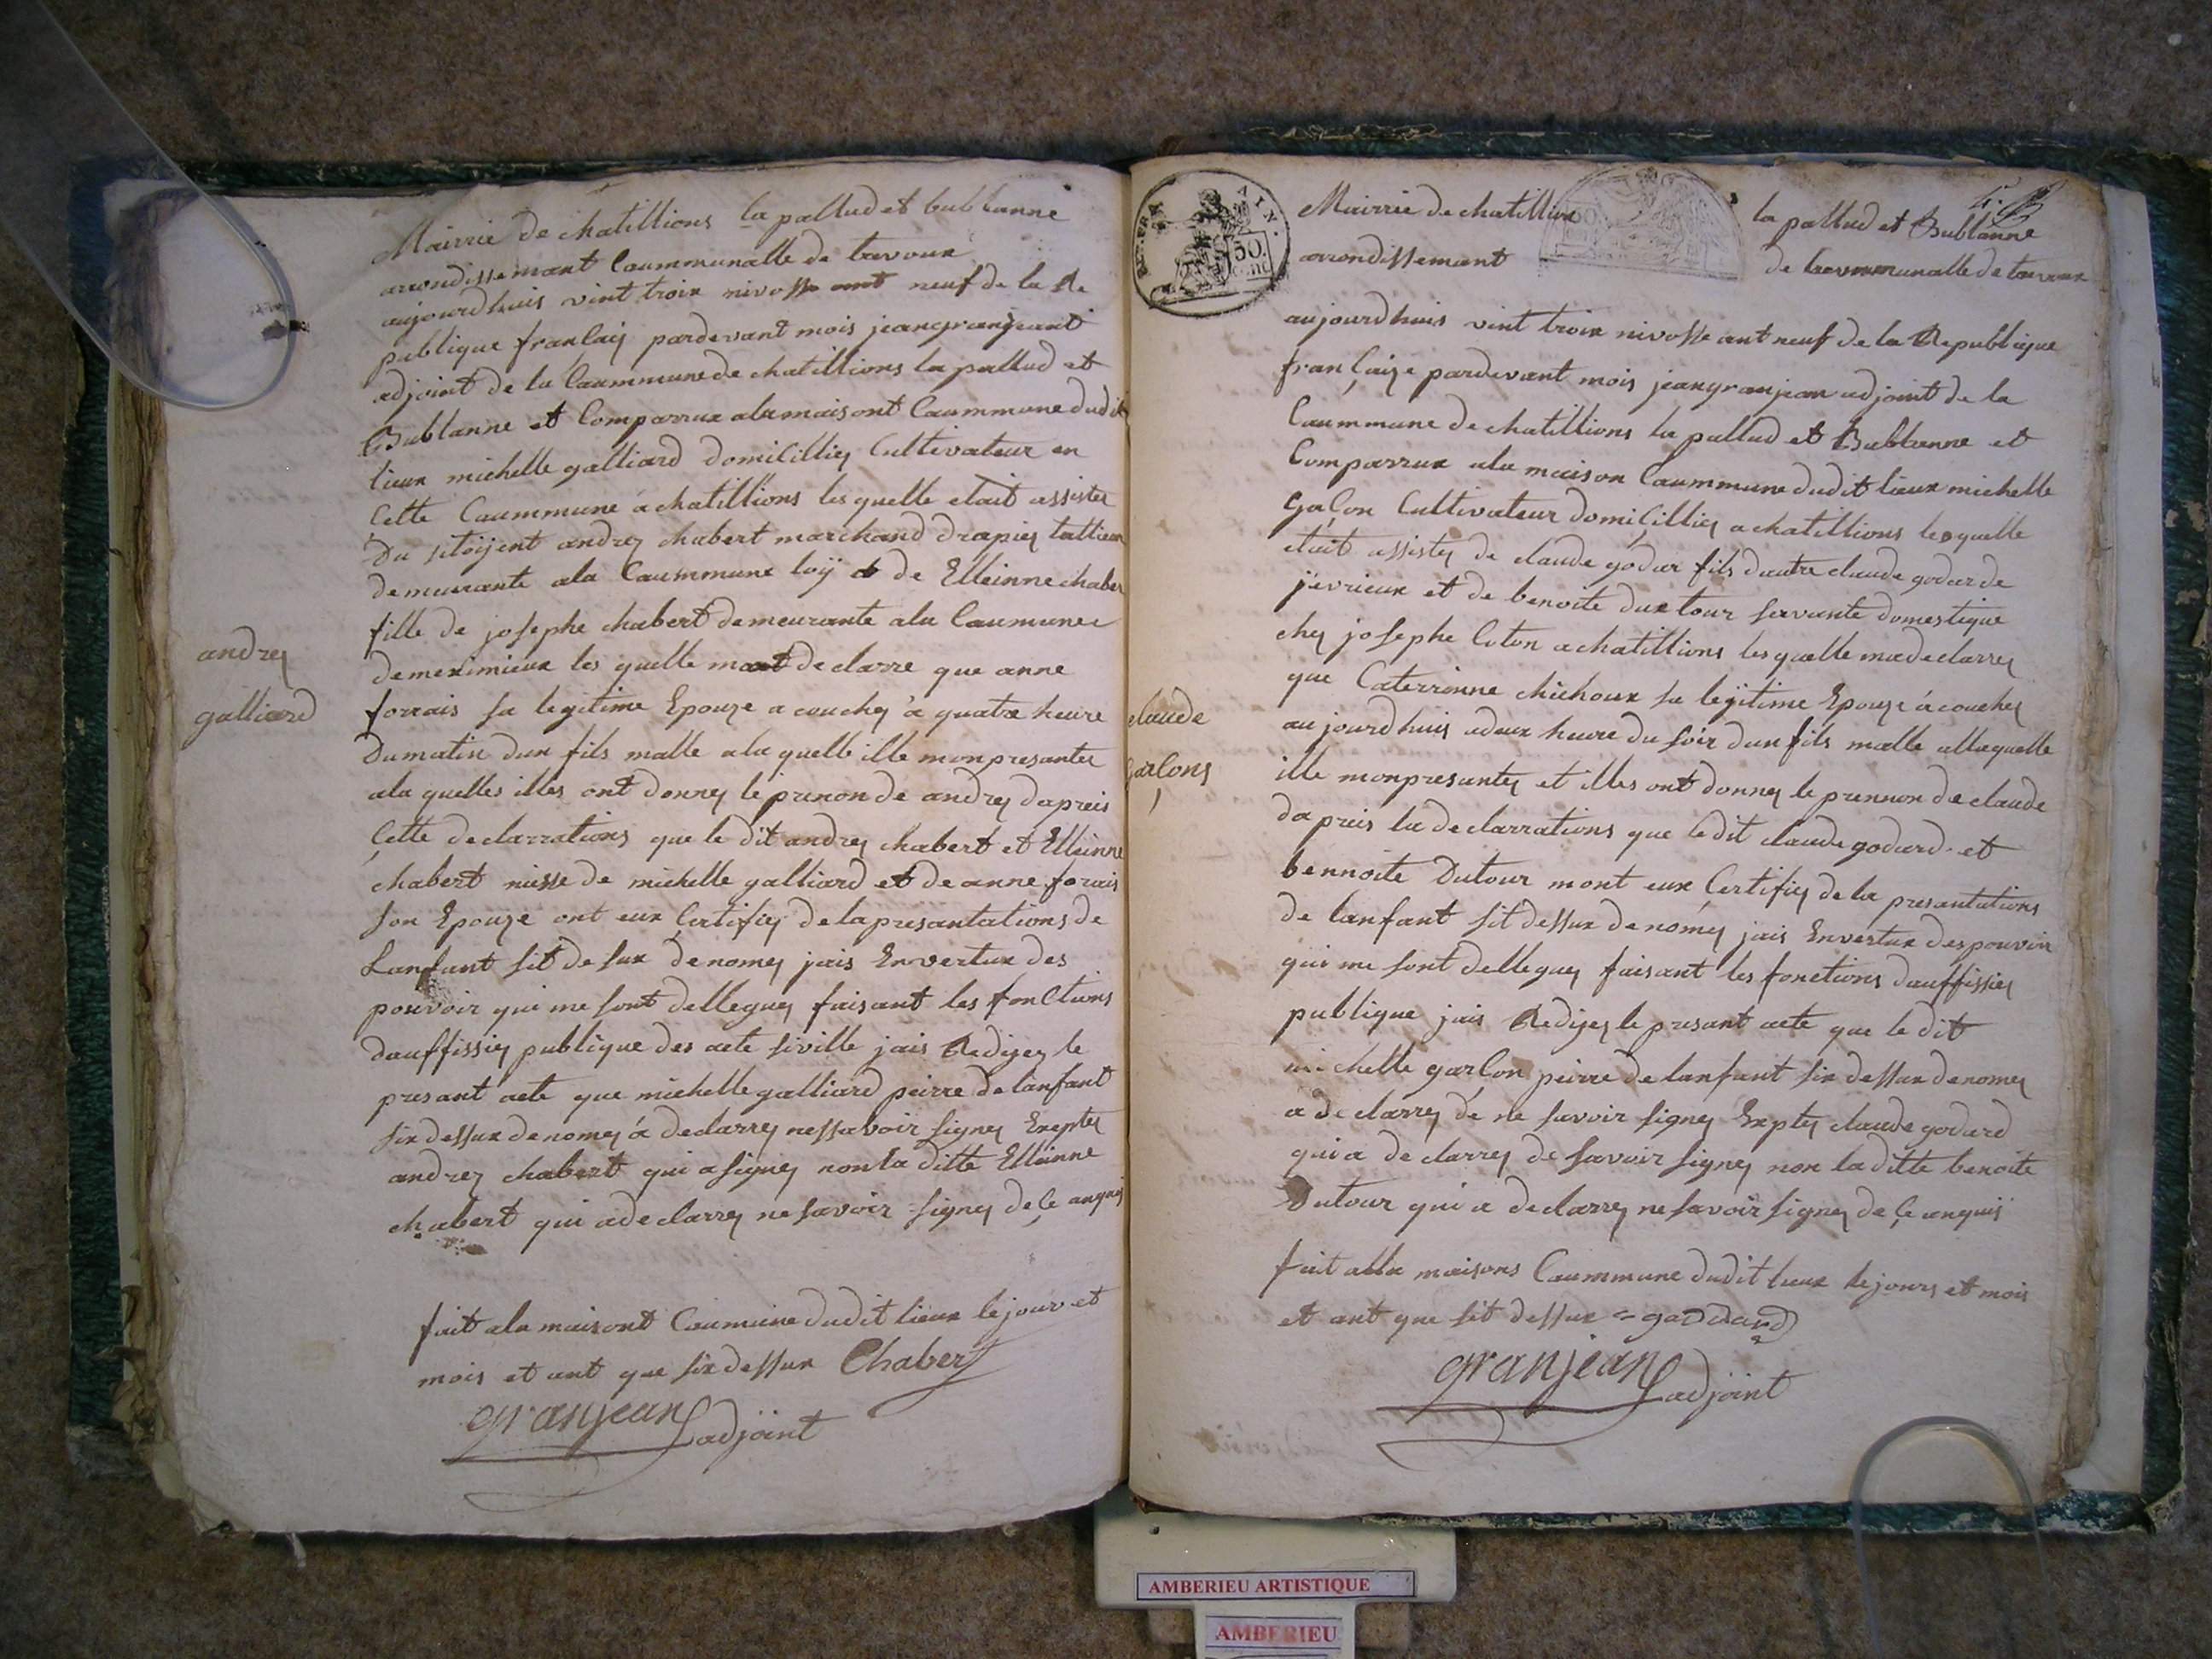 Mairrie de chatillions la pallud et bublanne
arrondissemant Caummunalle de trevoux
aujourdhuis vint troix nivosse ant neuf de la Re
publique franCaiz pardevant mois jeangranjeant
adjoint de la Caummune de chatillions la pallud et
Bublanne et Comparrux ala maisont Caummune dudit
lieux michelle galliard domiCilliez Cultivateur en
Cette Caummune a chatillions les quelle etait assister
Du sitoÿent andrez chabert marchand drapiez
demeurante ala Caummune loÿ et de Elleinne chaber
fille de josephe chabert demeurante ala Caumune
demeximieux les quelle mont declarre que anne
forrais sa legitime Epouze a couchez a quatre heure
Dumatin dun fils malle ala quelle ille monpresantez
ala quelles illes ont donnez le prenon de andrez dapreis
Cette declarrations que le dit andrez chabert et Elleinne
chabert niesse de michelle galliard et de anne forais
son Epouze ont eux Certifiez de la presantations de
Lanfant sit desux denomez jais Envertux des
pouvoir qui me sont delleguez faisant les fonCtions
dauffissiez publique des acte siville jais Redigez le
presant acte que michelle galliard peirre de lanfant
six dessux denomez a declarrez nessavoir signez Exeptez
andrez chabert qui a signez non la ditte Elleinne
chabert qui a declarrez ne savoir signez de çe anquis
fait ala maisont Caumune dudit lieux le jour et
mois et ant que six dessux Chabert
granjean adjoint
andrez
galliard
REP. FRA.
AIN.
50.
Mairrie de chatillion la pallud et Bublanne
arrondissemant de Caummunalle de trevoux
aujourdhuis vint troix nivosse ant neuf de la Republique
françaize pardevant mois jeangranjean adjoint de la
Caummune de chatillions la pallud et Bublanne et
Comparrux ala maison Caummune dudit lieux michelle
garÇon Cultivateur domiçilliez a chatillions lesquelle
etait assistez de claude godar fils dautre claude godar de
jevrieux et de benoite dutour servante domestique
chez josephe Coton a chatillions les quelle madeclarrez
que Caterrinne chichoux sa legitime Epouze a couchez
aujourdhuis a deux heure du soir dun fils malle allaquelle
ille monpresantez et illes ont donnez le prennon de claude
dapreis la declarrations que le dit claude godard et
bennoite Dutour mont eux Certifiez de la presantations
de lanfant sit dessux denomez jais Envertux des pouvoir
qui me sont delleguez faisant les fonctions dauffissiez
publique jais Redigez le presant acte que le dit
michelle garÇon peirre de lanfant six dessux denomez
a declarrez de ne savoir signez Exptez claude godard
qui a declarrez de savoir signez non la ditte benoite
Dutour qui a declarrez ne savoir signez de çe anquis
fait alla maisons Caummune dudit lieux le jours et mois
et ant que sit dessux = goddard
granjean adjoint
claude
garÇons
AMBERIEU ARTISTIQUE
AMBERIEU